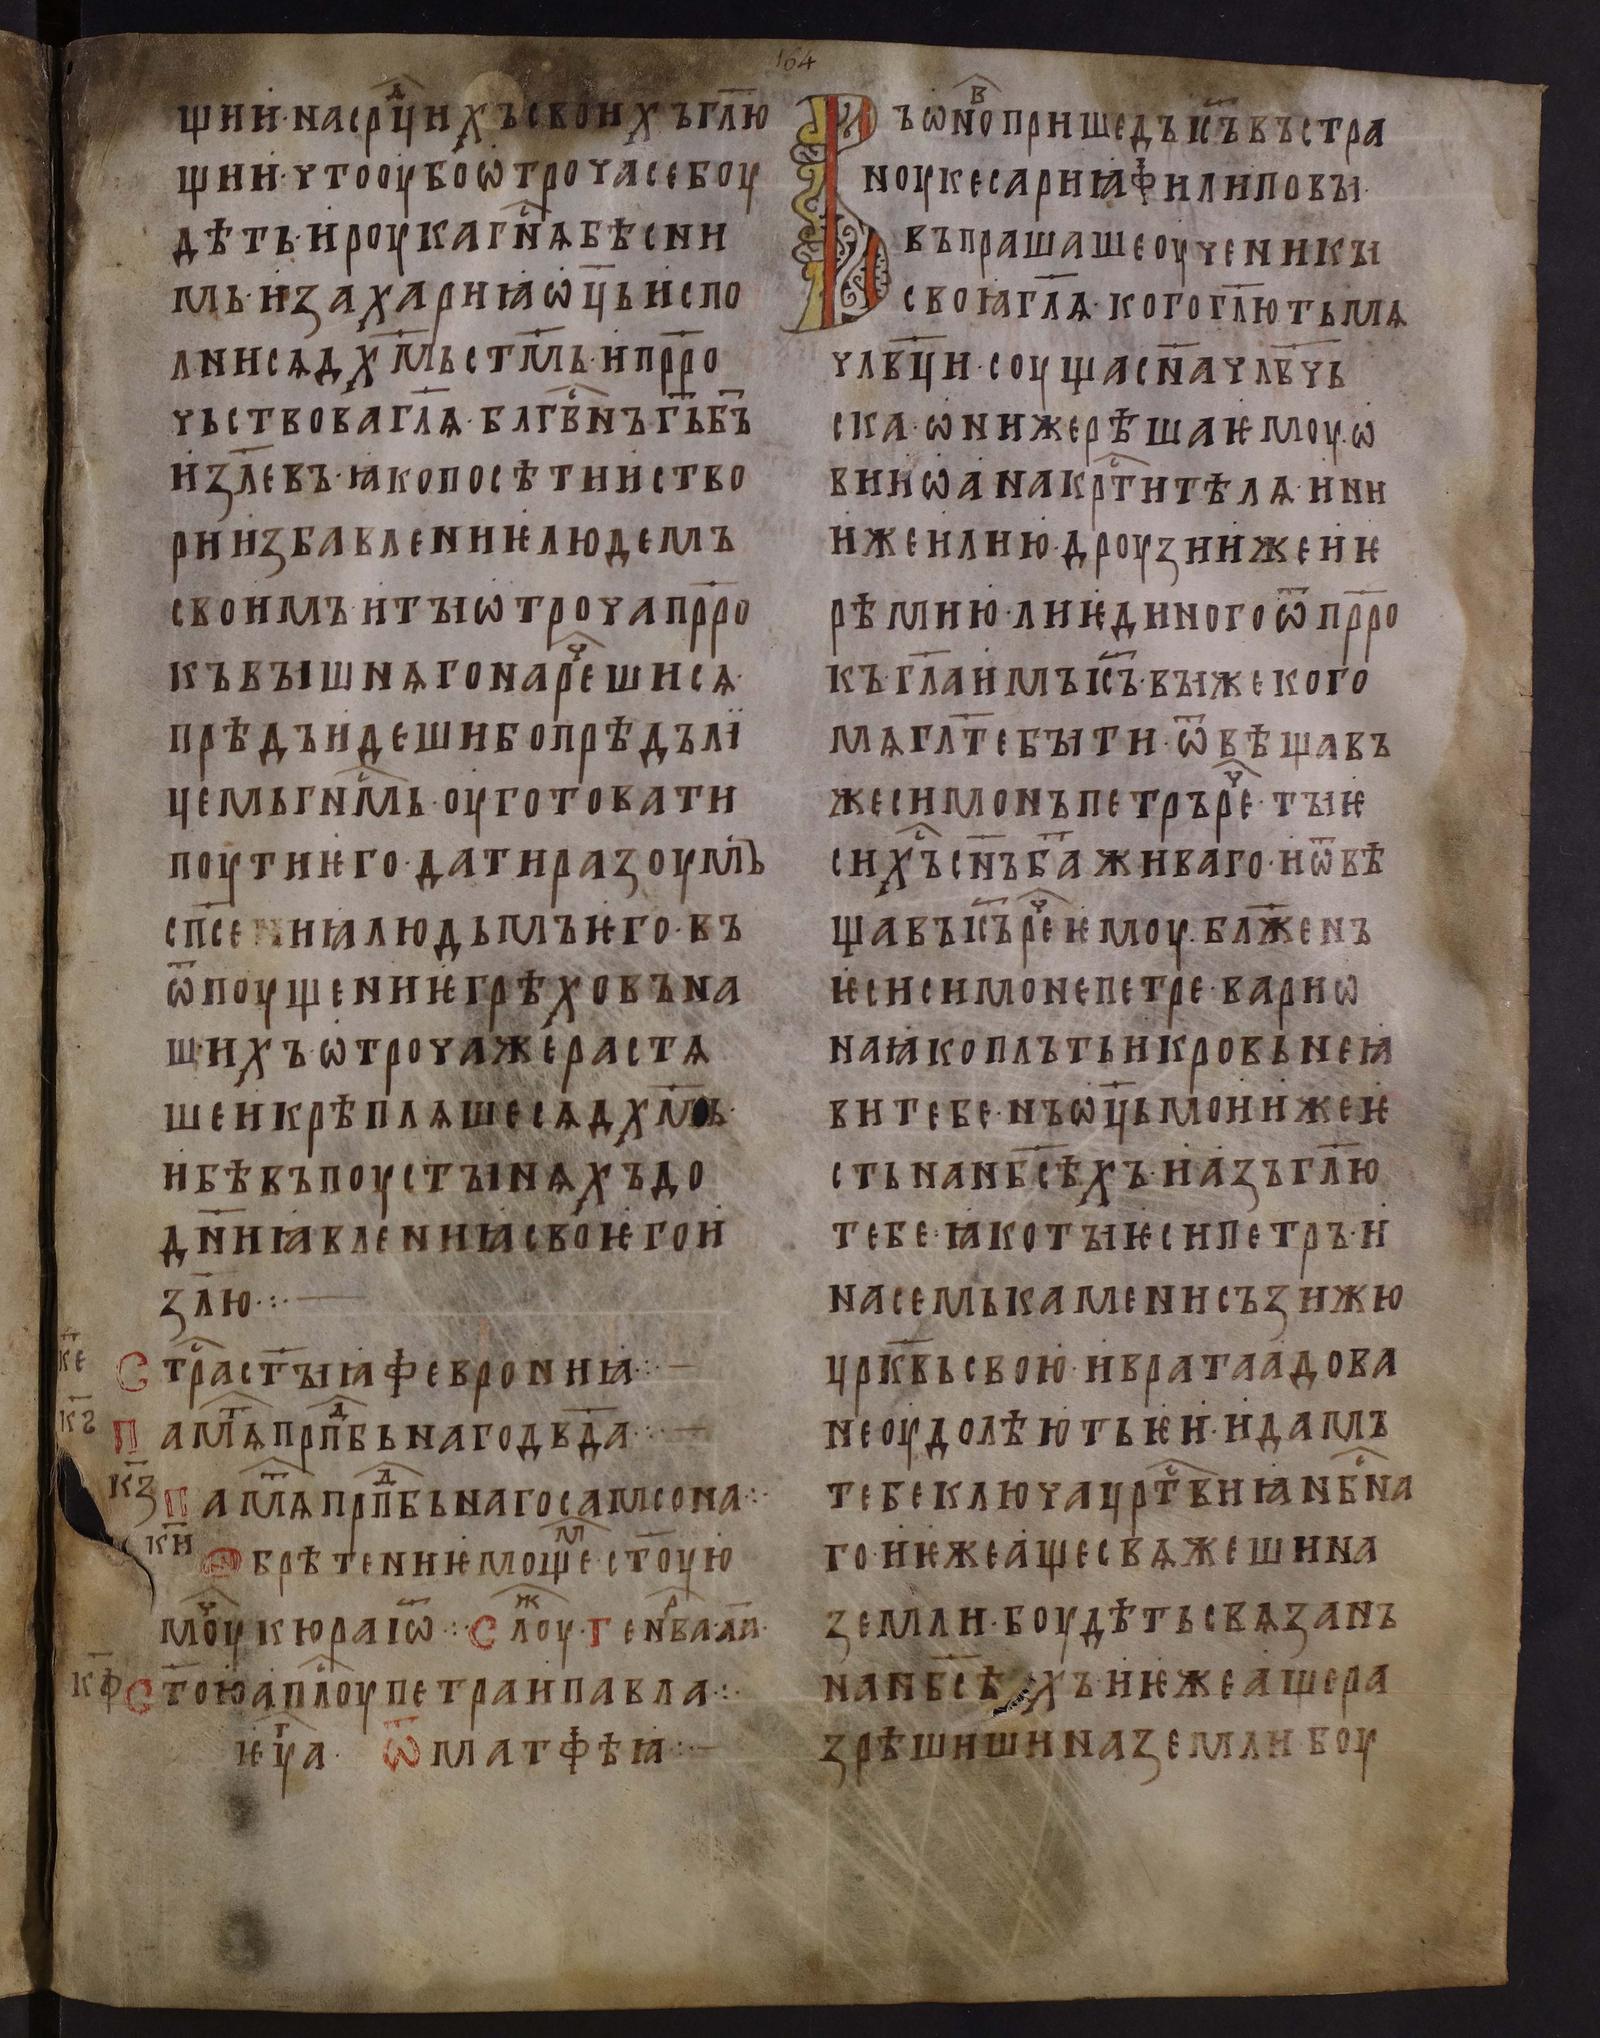 164
щии·насрⷣцихъсвоихъгл҃ю
щии·ѵтооубоѡтроѵасебоу
дѣть·ироукагнⷭ҇ѧбѣсни
мь·изахариꙗѡц҃ьиспо
лнисѧдх҃мьст҃мь·ипр҃ро
ѵьствовагл҃ѧ·блгвⷭ҇нъг҃ьб҃ъ
изл҃евъ·ꙗкопосѣтииство
риизбавлениѥлюдемъ
своимъ·итыѡтроѵапр҃ро
къвышнѧгонарⷱ҇ешисѧ·
прѣдъидешибопрѣдълї
цемьгнⷭ҇мь·оуготовати
поутиѥго·датиразоумъ
сп҃сениꙗлюдьмъѥго·въ
ѿпоущениѥгрѣховъна
шихъ·ѡтроѵажераста
шеикрѣплѧшесѧдх҃мь·
ибѣвъпоустынѧхъдо
дн҃иꙗвлениꙗсвоѥгои
зл҃ю·:·
к҃е Стрⷭ҇аст҃ыꙗфеврониꙗ·:·
к҃ѕ Памⷮѧпрпⷣбьнагодв҃да·:·
к҃з Памⷮѧпрпⷣбьнагосамсона·:·
к҃и Ѡбрѣтениѥмощеⷨ·ст҃оую
мⷱ҇оукюраіѡ҃·:·Слоуⷤ·генвⷬа·л҃а·
к҃ѳ Ст҃оюапⷭ҇лоупетраипавла·:·
ѥуⷢа· Ѿматфѣꙗ·:·
Въѡноⷡпришедъіс҃ъвъстра
ноукесариꙗфилиповы·
въпрашашеоуѵеникы
своꙗгл҃ѧ·когогл҃ютьмѧ
ѵлв҃ци·соущасн҃аѵлв҃ѵь
ска·ѡнижерѣшаѥмоу·ѡ
вииѡанакрⷭ҇тителѧ·ини
ижеилию·дроузиижеиѥ
рѣмию·лиѥдиногоѿпр҃ро
къ·гл҃аимъіс҃ъ·выжекого
мѧгл҃тебыти·ѿвѣщавъ
жесимонъпетрърⷱ҇е·тыѥ
сихⷭ҇ъсн҃ъб҃аживаго·иѿвѣ
щавъіс҃ърⷱ҇еѥмоу·блж҃енъ
ѥсисимонепетре·вариѡ
наꙗкоплътьикровьнеꙗ
витебе·нъѡц҃ьмоиижеѥ
стьнанб҃сѣхъ·иазъгл҃ю
тебе·ꙗкотыѥсипетръ·и
насемькаменисъзижю
црк҃вьсвою·ивратаадова
неоудолѣютьѥи·идамъ
тебеклюѵацрⷭ҇твиꙗнбⷭ҇на
го·иѥжеащесвѧжешина
земли·боудѣтьсвѧзанъ
нанб҃сѣхъ·иѥжеащера
зрѣшишиназемли·боу